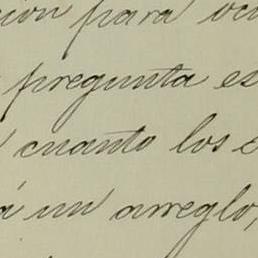 ción para oca
pregunta es
cuanto los e
á un arreglo,